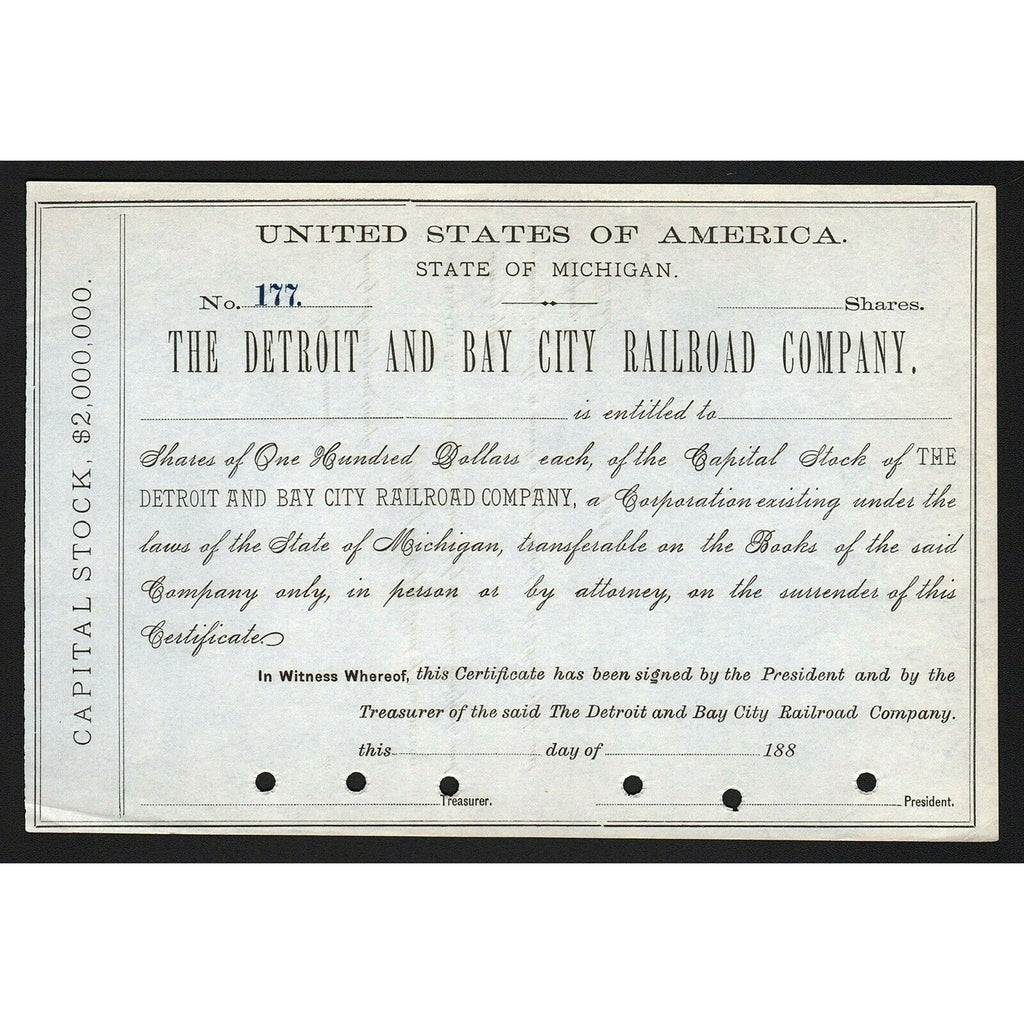 UNITED STATES OF AMERICA.
STATE OF MICHIGAN.
No. 177. Shares.
THE DETROIT AND BAY CITY RAILROAD COMPANY.
is entitled to
Shares of One Hundred Dollars each, of the Capital Stock of THE
DETROIT AND BAY CITY RAILROAD COMPANY, a Corporation existing under the
laws of the State of Michigan, transferable on the Books of the said
Company only, in person or by attorney, on the surrender of this
Certificate
In Witness Whereof, this Certificate has been signed by the President and by the
Treasurer of the said The Detroit and Bay City Railroad Company.
this day of 188
Treasurer. President.
CAPITAL STOCK, $2,000,000.